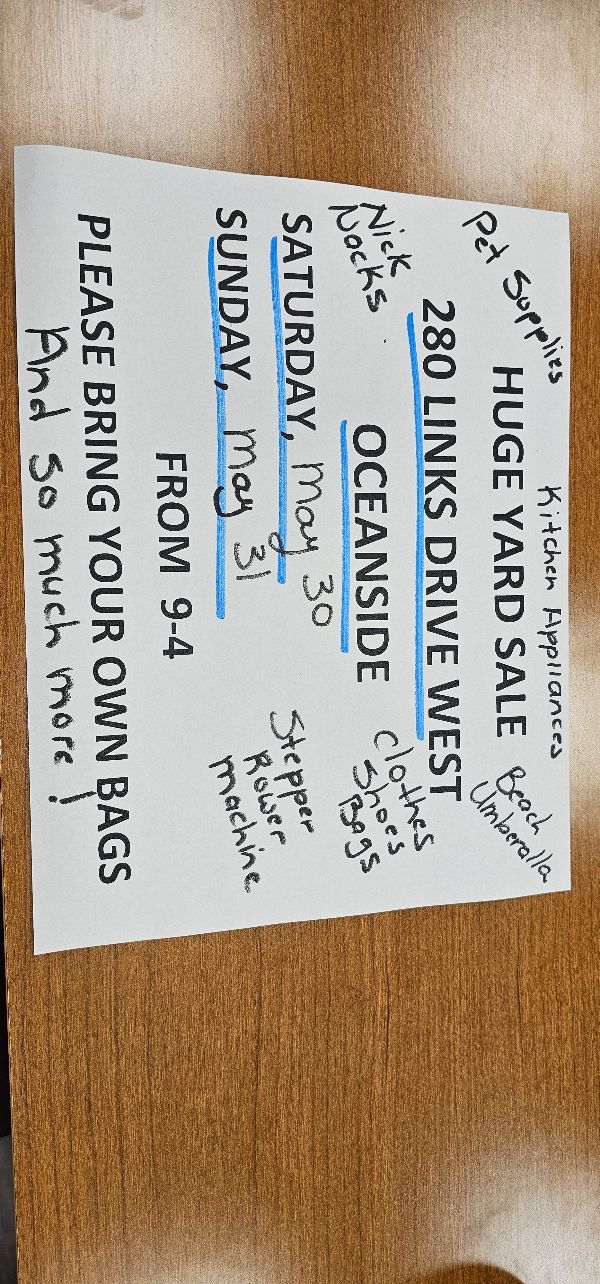 Pet Supplies
Kitchen Appliances
Beach
Umberalla
HUGE YARD SALE
280 LINKS DRIVE WEST
Nick
Nocks
OCEANSIDE
clothes
Shoes
Bags
SATURDAY, May 30
SUNDAY, May 31
Stepper
Rower
machine
FROM 9-4
PLEASE BRING YOUR OWN BAGS
And so much more!